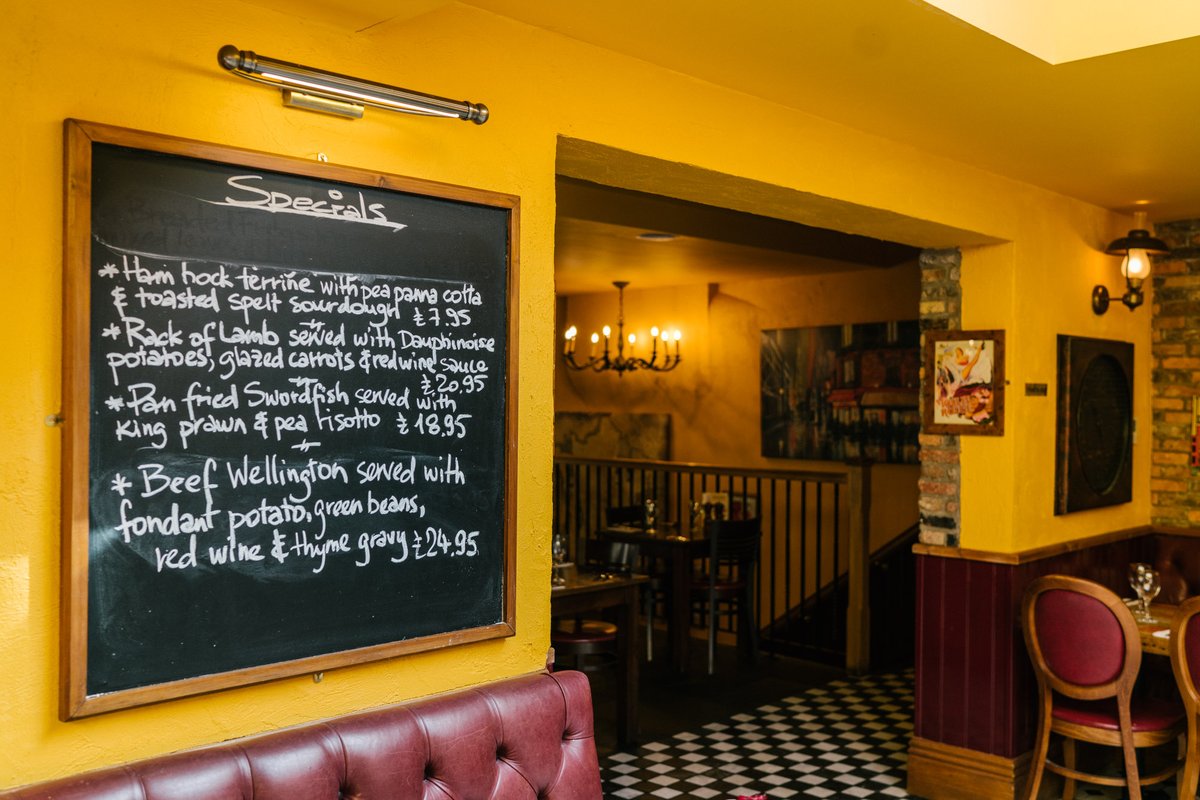 Specials
* Ham hock terrine with pea panna cotta
& toasted spelt sourdough £7.95
* Rack of Lamb served with Dauphinoise
potatoes, glazed carrots & red wine sauce
£20.95
* Pan fried Swordfish served with
King prawn & pea risotto £18.95
* Beef Wellington served with
fondant potato, green beans,
red wine & thyme gravy £24.95